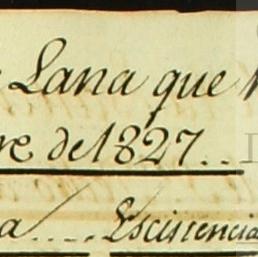 Lana que
re de 1827..
a.... Escistencia